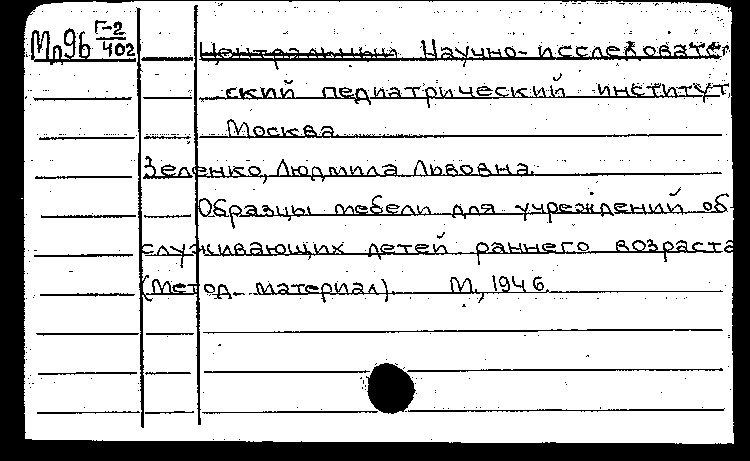 Мп96 Г-2/402
Центральный Научно-исследовате
ский педиатрический институт
Москва
Зеленко, Людмила Львовна.
Образцы мебели для учреждений об-
служивающих детей раннего возраста
(Метод. материал). М., 1946.